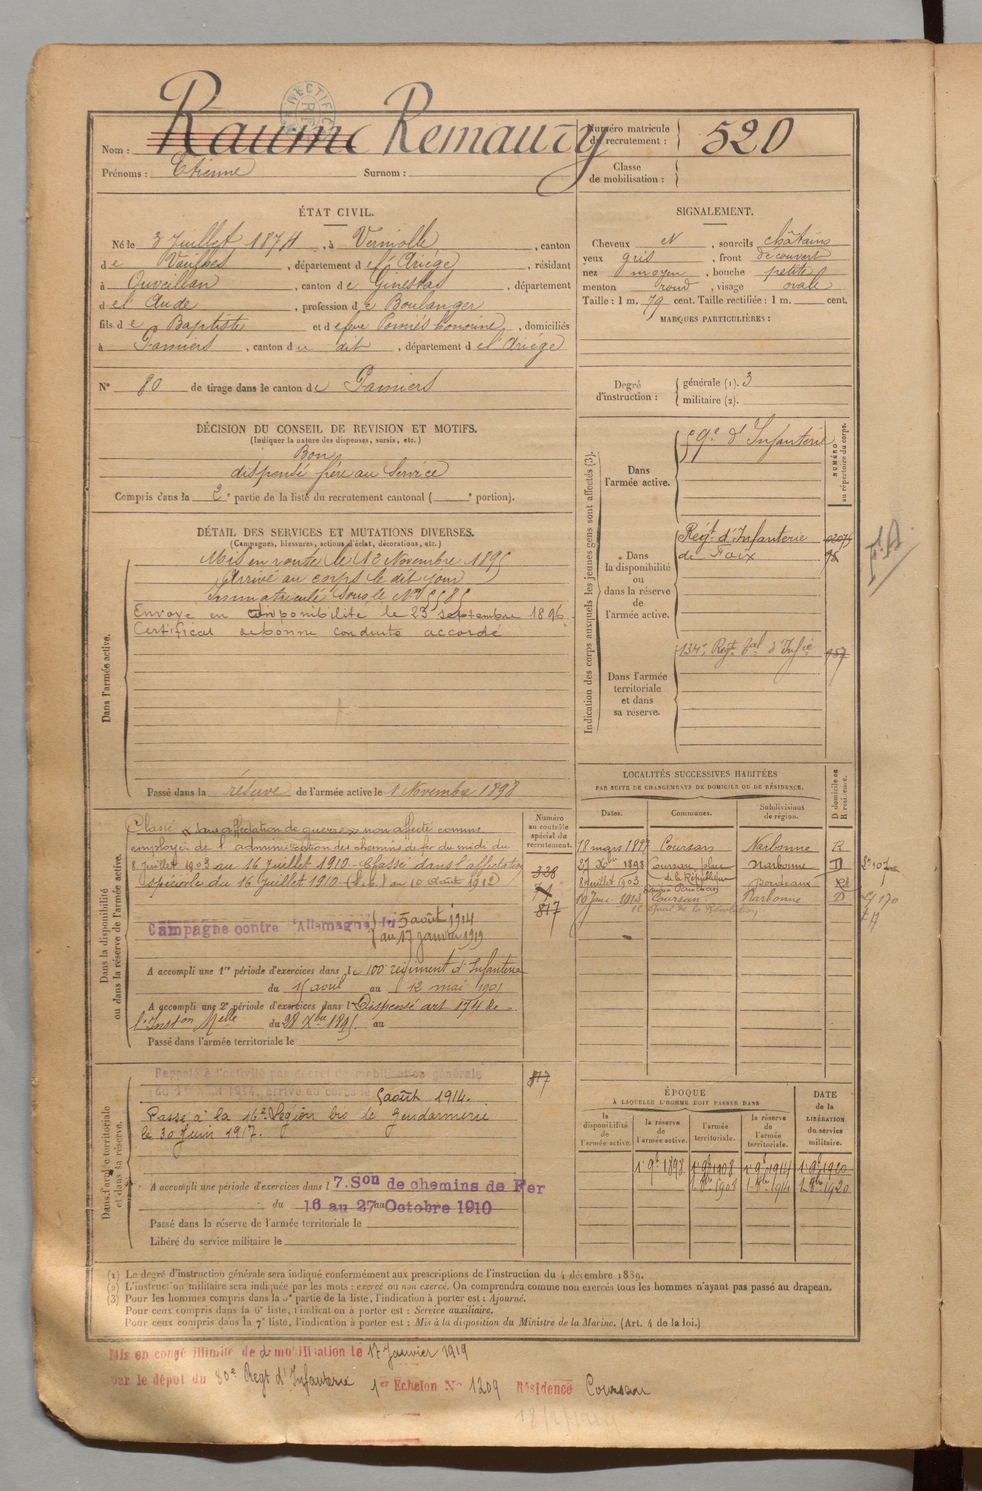 Nom : Raumé Remaury
Prénoms : Etienne Surnom :
Numéro matricule du recrutement : 520
Classe de mobilisation :
ÉTAT CIVIL.
Né le 3 Juillet 1874, à Verniolle, canton
de Varilhes, département de l'Ariège, résidant
à Ouveillan, canton de Ginestas, département
de l'Aude, profession de Boulanger
fils de Baptiste et de feue Pomiés Honorine, domiciliés
à Pamiers, canton du dit, département de l'Ariège
N° 80 de tirage dans le canton de Pamiers
SIGNALEMENT.
Cheveux N, sourcils châtains
yeux gris, front découvert
nez moyen, bouche petite
menton rond, visage ovale
Taille : 1 m. 79 cent. Taille rectifiée : 1 m. cent.
MARQUES PARTICULIÈRES :
Degré d'instruction : générale (1). 3
militaire (2).
DÉCISION DU CONSEIL DE REVISION ET MOTIFS.
(Indiquer la nature des dispenses, sursis, etc.)
Bon
dispensé frère au Service
Compris dans la 2e partie de la liste du recrutement cantonal ( e portion).
DÉTAIL DES SERVICES ET MUTATIONS DIVERSES.
(Campagnes, blessures, actions d'éclat, décorations, etc.)
Dans l'armée active.
Mis en route le 12 Novembre 1895
Arrivé au corps le dit jour
Immatriculé sous le N°
Envoyé en disponibilité le 23 septembre 1896
Certificat de bonne conduite accordé
Passé dans la réserve de l'armée active le 1 Novembre 1898
Indication des corps auxquels les jeunes gens sont affectés (3).
NUMÉRO au répertoire du corps.
Dans l'armée active. 59e d'Infanterie
Dans la disponibilité ou dans la réserve de l'armée active. Régt d'Infanterie de Foix
Dans l'armée territoriale et dans sa réserve. 134e Regt tal d'Infie 957
LOCALITÉS SUCCESSIVES HABITÉES
PAR SUITE DE CHANGEMENTS DE DOMICILE OU DE RÉSIDENCE.
Dates. Communes. Subdivisions de région. D domicile ou R résidence.
18 mars 1897 Coursan Narbonne R
27 Xbre 1898 Coursan place de la République Narbonne D
8 juillet 1903 Bordeaux
10 Janv 1913 Coursan Narbonne D
Dans la disponibilité ou dans la réserve de l'armée active.
Numéro au contrôle spécial du recrutement.
Classé dans affectation de guerre non affecté comme
employé de l'administration des chemins de fer du midi du
8 juillet 1903 au 16 juillet 1910. Classé dans l'affectation
spéciale du 16 juillet 1910 au 10 Août 1912
338
817
Campagne contre l'Allemagne du 5 août 1914
au 17 janvier 1919
A accompli une 1re période d'exercices dans le 100e régiment d'Infanterie
du 15 avril au 12 mai 1901
A accompli une 2e période d'exercices dans l Dispensé art de
l'Inston Melle du 28 Xbre 1895 au
Passé dans l'armée territoriale le
Dans l'armée territoriale et dans la réserve.
Rappelé à l'activité par décret de mobilisation générale
du 1er août 1914, arrivé au corps le 5 août 1914.
817
Passé à la 16e Légion bis de Gendarmerie
le 30 Juin 1917.
A accompli une période d'exercices dans l 7. Son de chemins de Fer
du 16 au 27 Octobre 1910
Passé dans la réserve de l'armée territoriale le
Libéré du service militaire le
ÉPOQUE
À LAQUELLE L'HOMME DOIT PASSER DANS
la disponibilité de l'armée active. la réserve de l'armée active. l'armée territoriale. la réserve de l'armée territoriale.
DATE de la LIBÉRATION du service militaire.
1er 9bre 1898 1er 9bre 1908 1er 9bre 1914 1er 9bre 1920
(1) Le degré d'instruction générale sera indiqué conformément aux prescriptions de l'instruction du 4 décembre 1889.
(2) L'instruction militaire sera indiquée par les mots : exercé ou non exercé. On comprendra comme non exercés tous les hommes n'ayant pas passé au drapeau.
(3) Pour les hommes compris dans la 5e partie de la liste, l'indication à porter est : Ajourné.
Pour ceux compris dans la 6e liste, l'indication à porter est : Service auxiliaire.
Pour ceux compris dans la 7e liste, l'indication à porter est : Mis à la disposition du Ministre de la Marine. (Art. 4 de la loi.)
Mis en congé illimité de démobilisation le 17 Janvier 1919
par le dépôt du 80e Regt d'Infanterie 1er Echelon N° 1209 Résidence Coursan